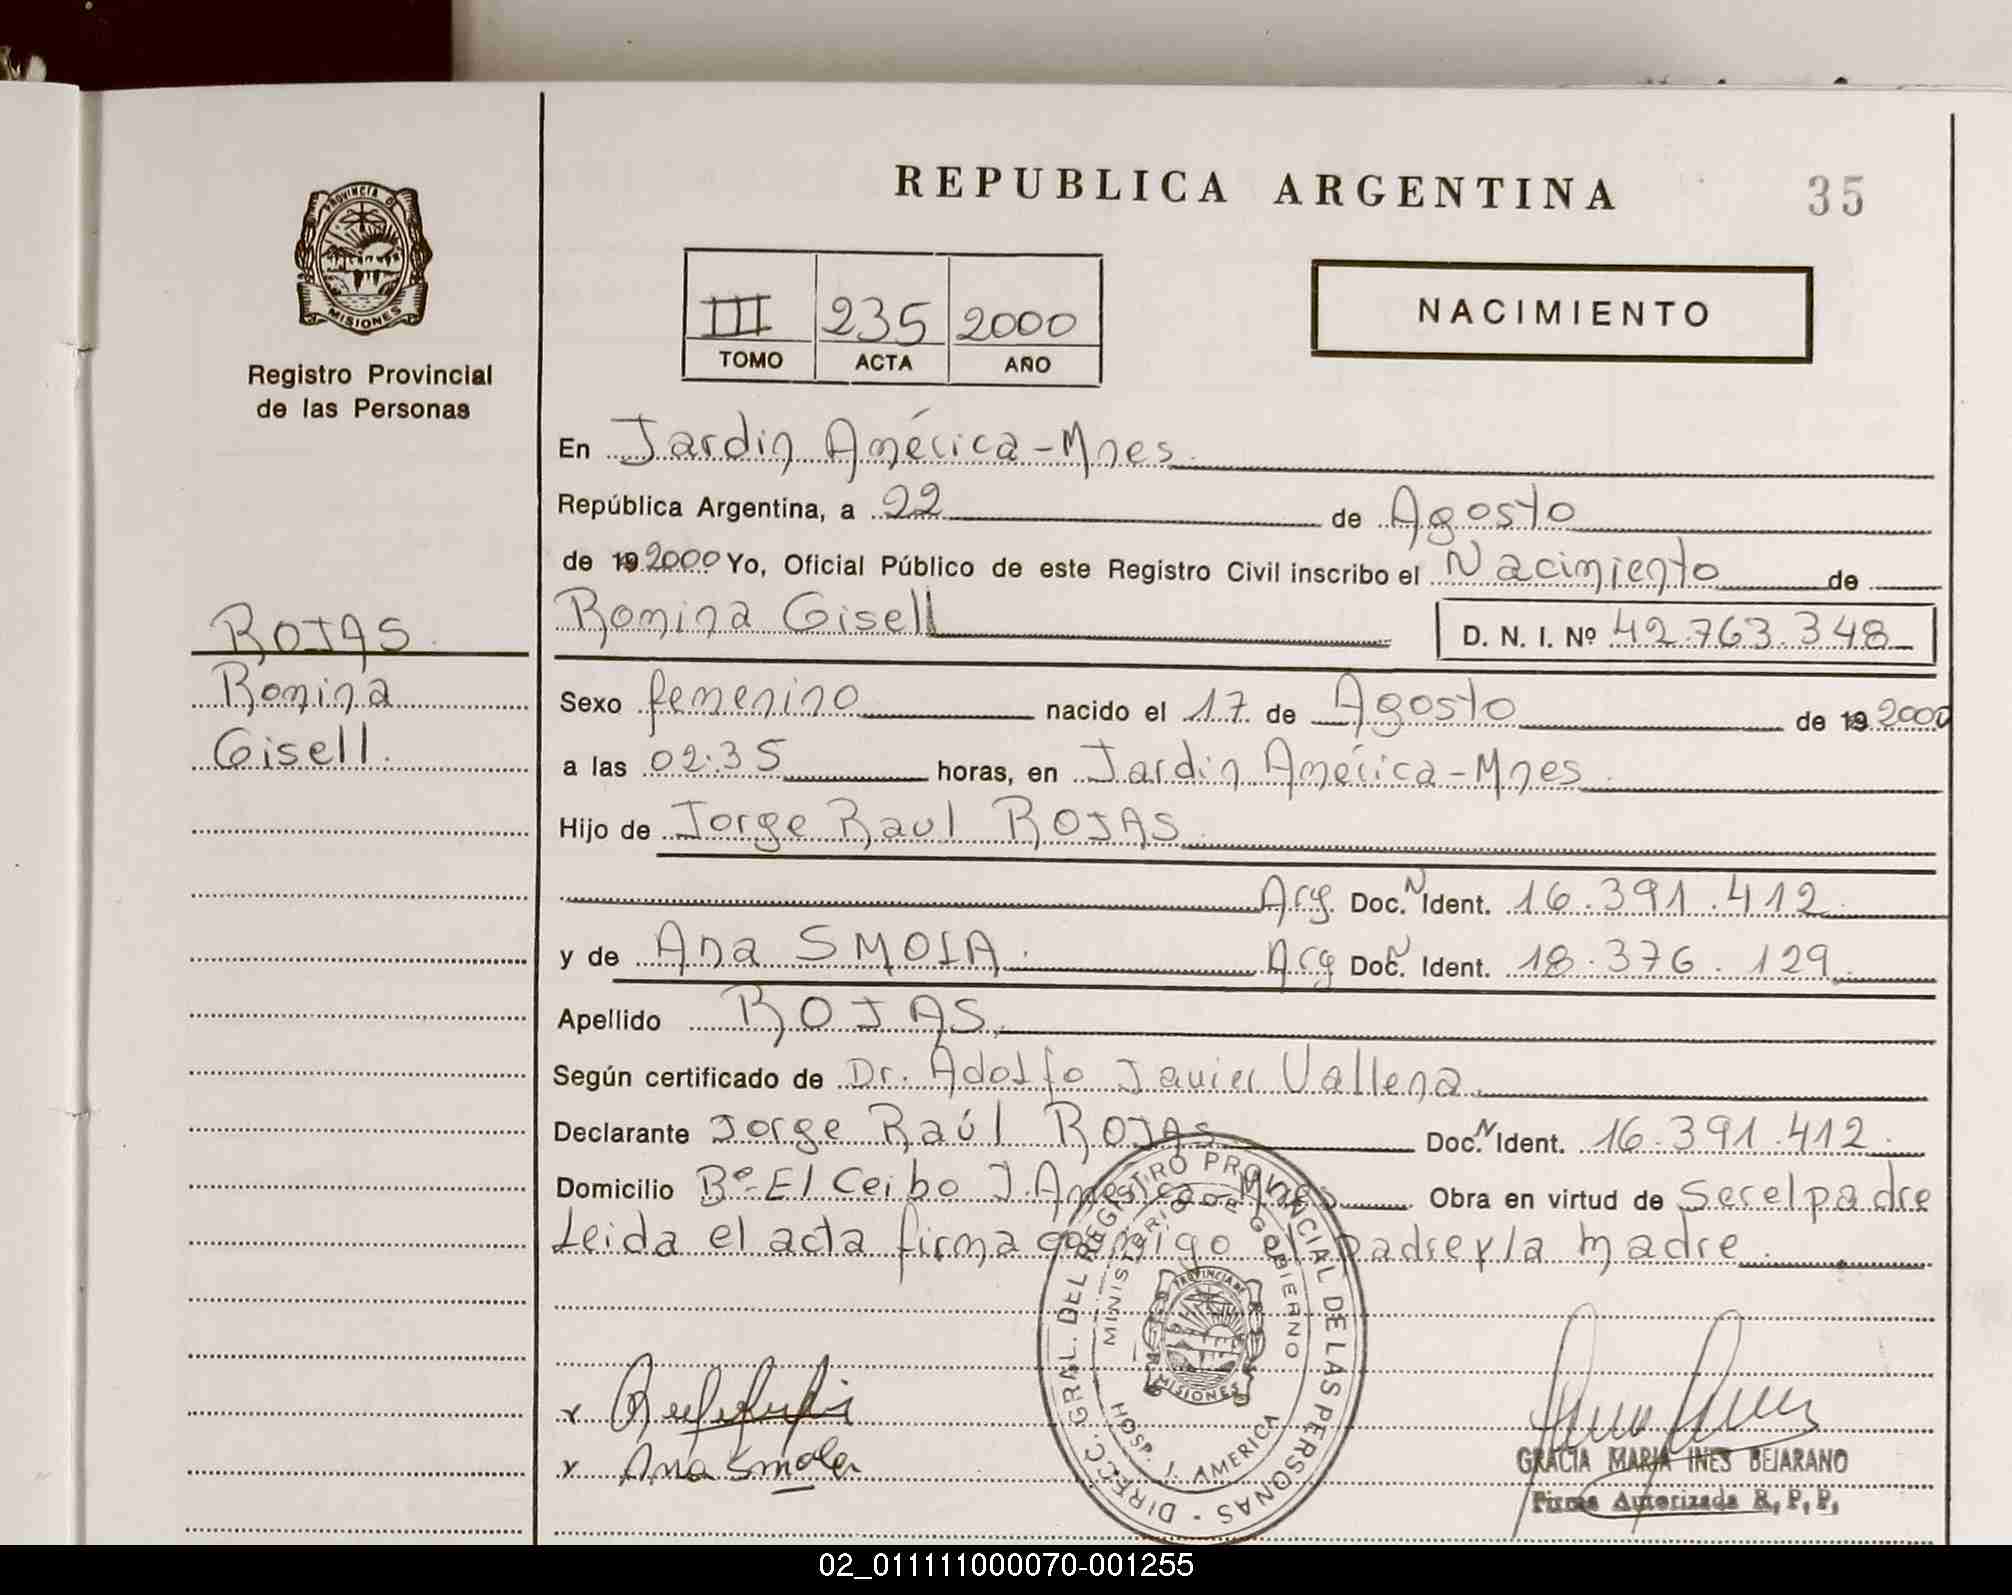 REPUBLICA ARGENTINA
35
PROVINCIA DE
MISIONES
Registro Provincial
de las Personas
III 235 2000
TOMO ACTA AÑO
NACIMIENTO
En Jardin América-Mnes.
República Argentina, a 22 de Agosto
de 19 2000 Yo, Oficial Público de este Registro Civil inscribo el Nacimiento de
ROJAS
Romina
Gisell.
Romina Gisell D. N. I. Nº 42.763.348
Sexo femenino nacido el 17 de Agosto de 19 2000
a las 02:35 horas, en Jardin América-Mnes.
Hijo de Jorge Raul ROJAS.
Arg. Doc. N Ident. 16.391.412
y de Ana SMOLA. Arg Doc. N Ident. 18.376.129
Apellido ROJAS.
Según certificado de Dr. Adolfo Javier Vallena
Declarante Jorge Raúl ROJAS Doc. N Ident. 16.391.412.
Domicilio Bº El Ceibo J. América-Mnes Obra en virtud de Ser el padre
Leida el acta firma conmigo el padre y la madre.
DIRECC. GRAL. DEL REGISTRO PROVINCIAL DE LAS PERSONAS -
MINISTERIO DE GOBIERNO
PROVINCIA DE
MISIONES
HOSP. J. AMERICA
x
x Ana Smola
GRACIA MARIA INES BEJARANO
Firma Autorizada R. P. P.
02_011111000070-001255